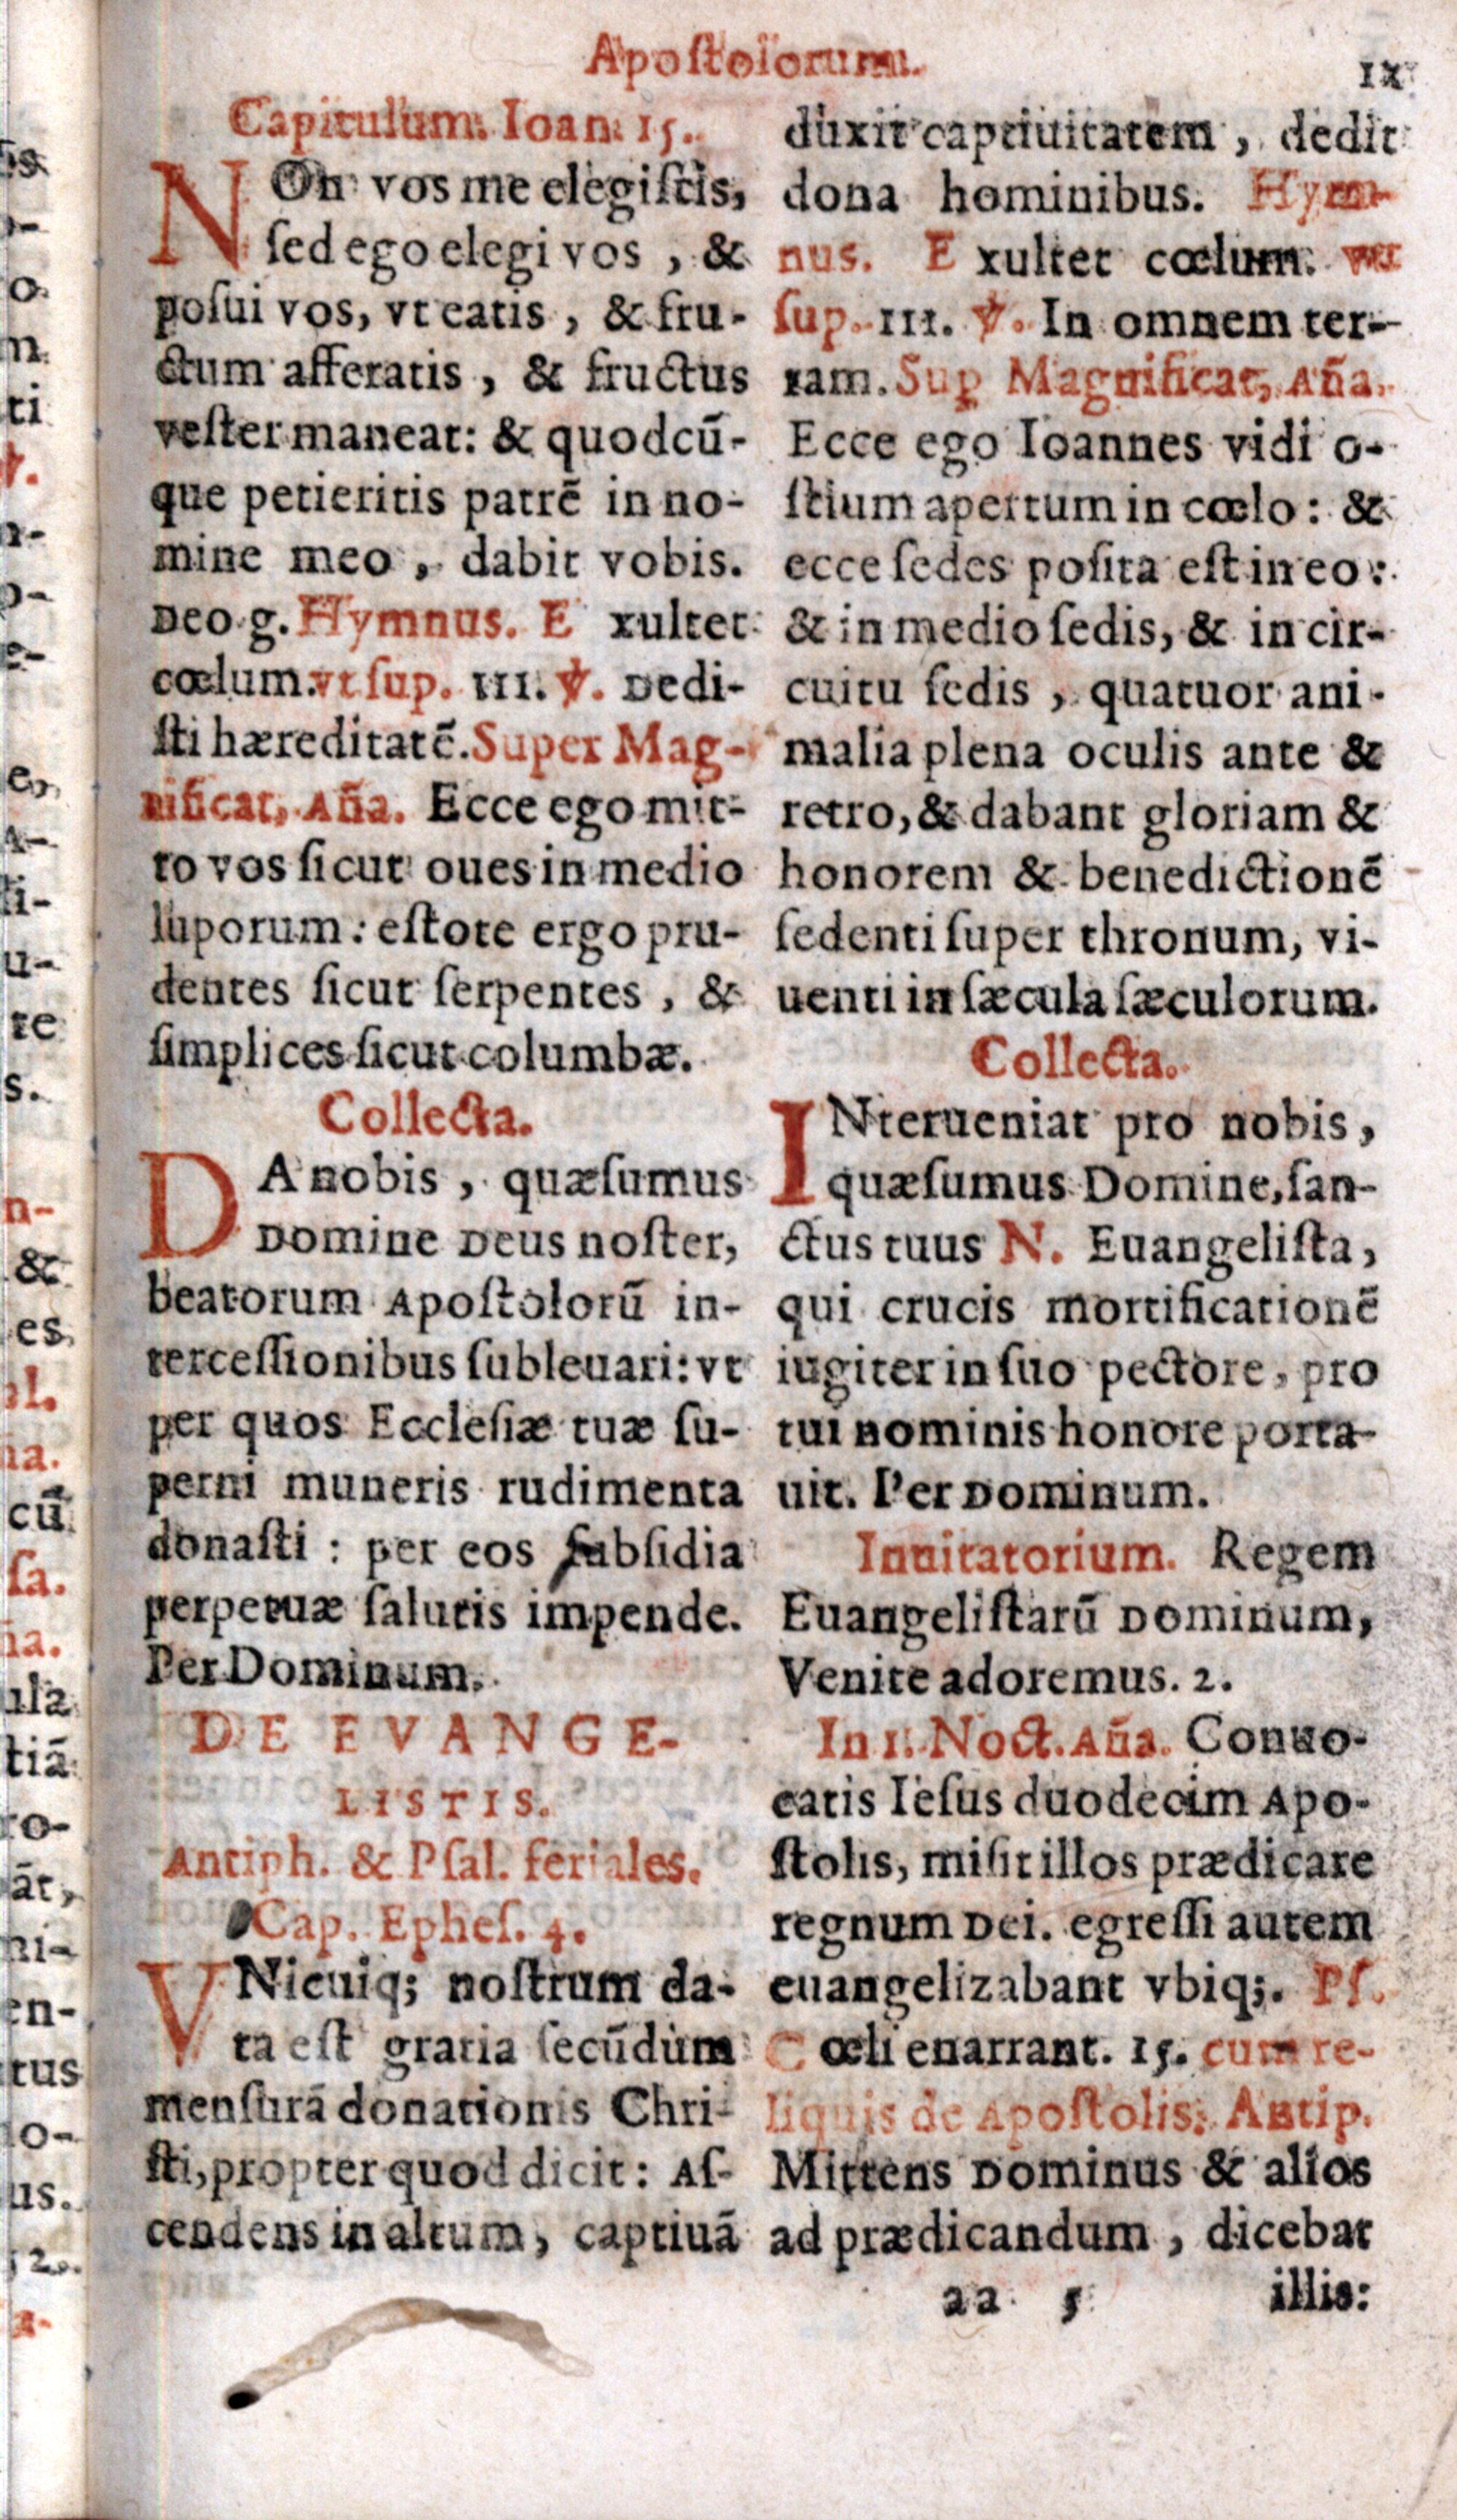 Apoſtolorum.
IX
Capitulum. Ioan. 15.
NOn vos me elegiſtis,
ſed ego elegi vos, &
poſui vos, vt eatis, & fru-
ctum afferatis, & fructus
veſter maneat: & quodcū-
que petieritis patrē in no-
mine meo, dabit vobis.
Deo g. Hymnus. E xultet
cœlum. vt ſup. III. ℣. Dedi-
ſti hæreditatē. Super Mag-
nificat, Aña. Ecce ego mit-
to vos ſicut oues in medio
luporum: eſtote ergo pru-
dentes ſicut ſerpentes, &
ſimplices ſicut columbæ.
Collecta.
DA nobis, quæſumus
Domine Deus noſter,
beatorum Apoſtolorū in-
terceſſionibus ſubleuari: vt
per quos Eccleſiæ tuæ ſu-
perni muneris rudimenta
donaſti: per eos ſubſidia
perpetuæ ſalutis impende.
Per Dominum.
DE EVANGE-
LISTIS.
Antiph. & Pſal. feriales.
Cap. Epheſ. 4.
VNicuiq; noſtrum da-
ta eſt gratia ſecūdum
menſurā donationis Chri-
ſti, propter quod dicit: Aſ-
cendens in altum, captiuā
duxit captiuitatem, dedit
dona hominibus. Hym-
nus. E xultet cœlum. vt
ſup. III. ℣. In omnem ter-
ram. Sup Magnificat, Aña.
Ecce ego Ioannes vidi o-
ſtium apertum in cœlo: &
ecce ſedes poſita eſt in eo:
& in medio ſedis, & in cir-
cuitu ſedis, quatuor ani-
malia plena oculis ante &
retro, & dabant gloriam &
honorem & benedictionē
ſedenti ſuper thronum, vi-
uenti in ſæcula ſæculorum.
Collecta.
INterueniat pro nobis,
quæſumus Domine, ſan-
ctus tuus N. Euangeliſta,
qui crucis mortificationē
iugiter in ſuo pectore, pro
tui nominis honore porta-
uit. Per Dominum.
Inuitatorium. Regem
Euangeliſtarū Dominum,
Venite adoremus. 2.
In 1. Noct. Aña. Conuo-
catis Ieſus duodecim Apo-
ſtolis, miſit illos prædicare
regnum Dei. egreſſi autem
euangelizabant vbiq;. Pſ.
C œli enarrant. 15. cum re-
liquis de Apoſtolis. Antip.
Mittens Dominus & alios
ad prædicandum, dicebat
aa 5
illis: